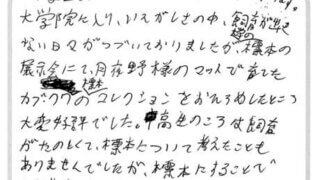 大学院に入り、いそがしさの中、飼育が出来
ない日々がつづいておりましたが、標本の
展示会にて、月夜野様のマットで育てた
カブクワの標本コレクションをおひろめしたところ
大変好評でした。高生のころは飼育
がたのしくて、標本について考えたことも
ありませんでしたが、標本にすることで